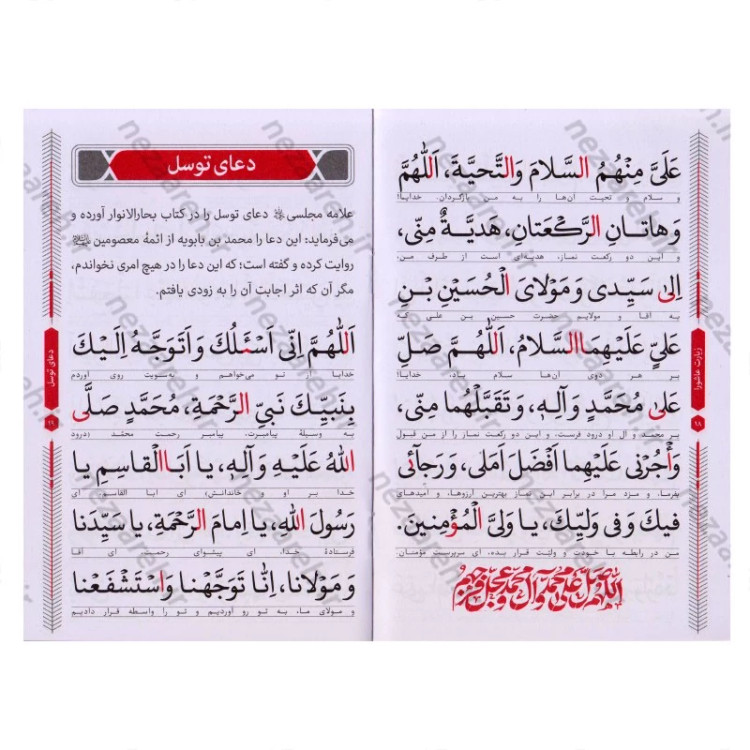 عَلَیَّ مِنْهُمُ السَّلامَ وَالتَّحیَّةَ، اَللّٰهُمَّ
و سلام و تحیت آن‌ها را به من بازگردان. خدایا!
وَ هاتانِ الرَّکْعَتانِ، هَدیَّةٌ مِنّی،
و این دو رکعت نماز، هدیه‌ای است از طرف من،
اِلیٰ سَیِّدی وَ مَوْلایَ الْحُسَیْنِ بْنِ
به آقا و مولایم حضرت حسین بن علی که
عَلیٍّ عَلَیْهِمَا السَّلامُ، اَللّٰهُمَّ صَلِّ
بر هر دوی آن‌ها سلام باد، خدایا!
عَلیٰ مُحَمَّدٍ وَ آلِهِ، وَ تَقَبَّلْهُما مِنّی،
بر محمد و آل او درود فرست، و این دو رکعت نماز را از من قبول
وَ أْجُرْنی عَلَیْهِما اَفْضَلَ اَمَلی، وَ رَجآئی
بفرما، و مزد مرا در برابر این نماز بهترین آرزوها، و امیدهای
فیکَ وَ فی وَلیِّکَ، یا وَلیَّ الْمُؤْمِنینَ.
من در رابطه با خودت و ولیّت قرار بده، ای سرپرست مؤمنان.
اللهم صل علی محمد و آل محمد و عجل فرجهم
زیارت عاشورا
۱۸
دعای توسل
علامه مجلسی دعای توسل را در کتاب بحارالانوار آورده و
می‌فرماید: این دعا را محمد بن بابویه از ائمهٔ معصومین
روایت کرده و گفته است؛ که این دعا را در هیچ امری نخواندم،
مگر آن که اثر اجابت آن را به زودی یافتم.
اَللّٰهُمَّ اِنّی اَسْئَلُکَ وَ اَتَوَجَّهُ اِلَیْکَ
خدایا از تو می‌خواهم و به‌سویت روی آوردم
بِنَبیِّکَ نَبیِّ الرَّحْمَةِ، مُحَمَّدٍ صَلَّی
به وسیلهٔ پیامبرت، پیامبر رحمت محمّد (درود
اللهُ عَلَیْهِ وَ آلِهِ، یا اَبَا الْقاسِمِ یا
خدا بر او و خاندانش) ای ابا القاسم ای
رَسُولَ اللهِ، یا اِمامَ الرَّحْمَةِ، یا سَیِّدَنا
فرستادهٔ خدا، ای پیشوای رحمت ای آقا
وَ مَوْلانا، اِنّا تَوَجَّهْنا وَ اسْتَشْفَعْنا
و مولای ما، به تو رو آوردیم و تو را واسطه قرار دادیم
دعای توسل
۱۹
nezaareh.ir